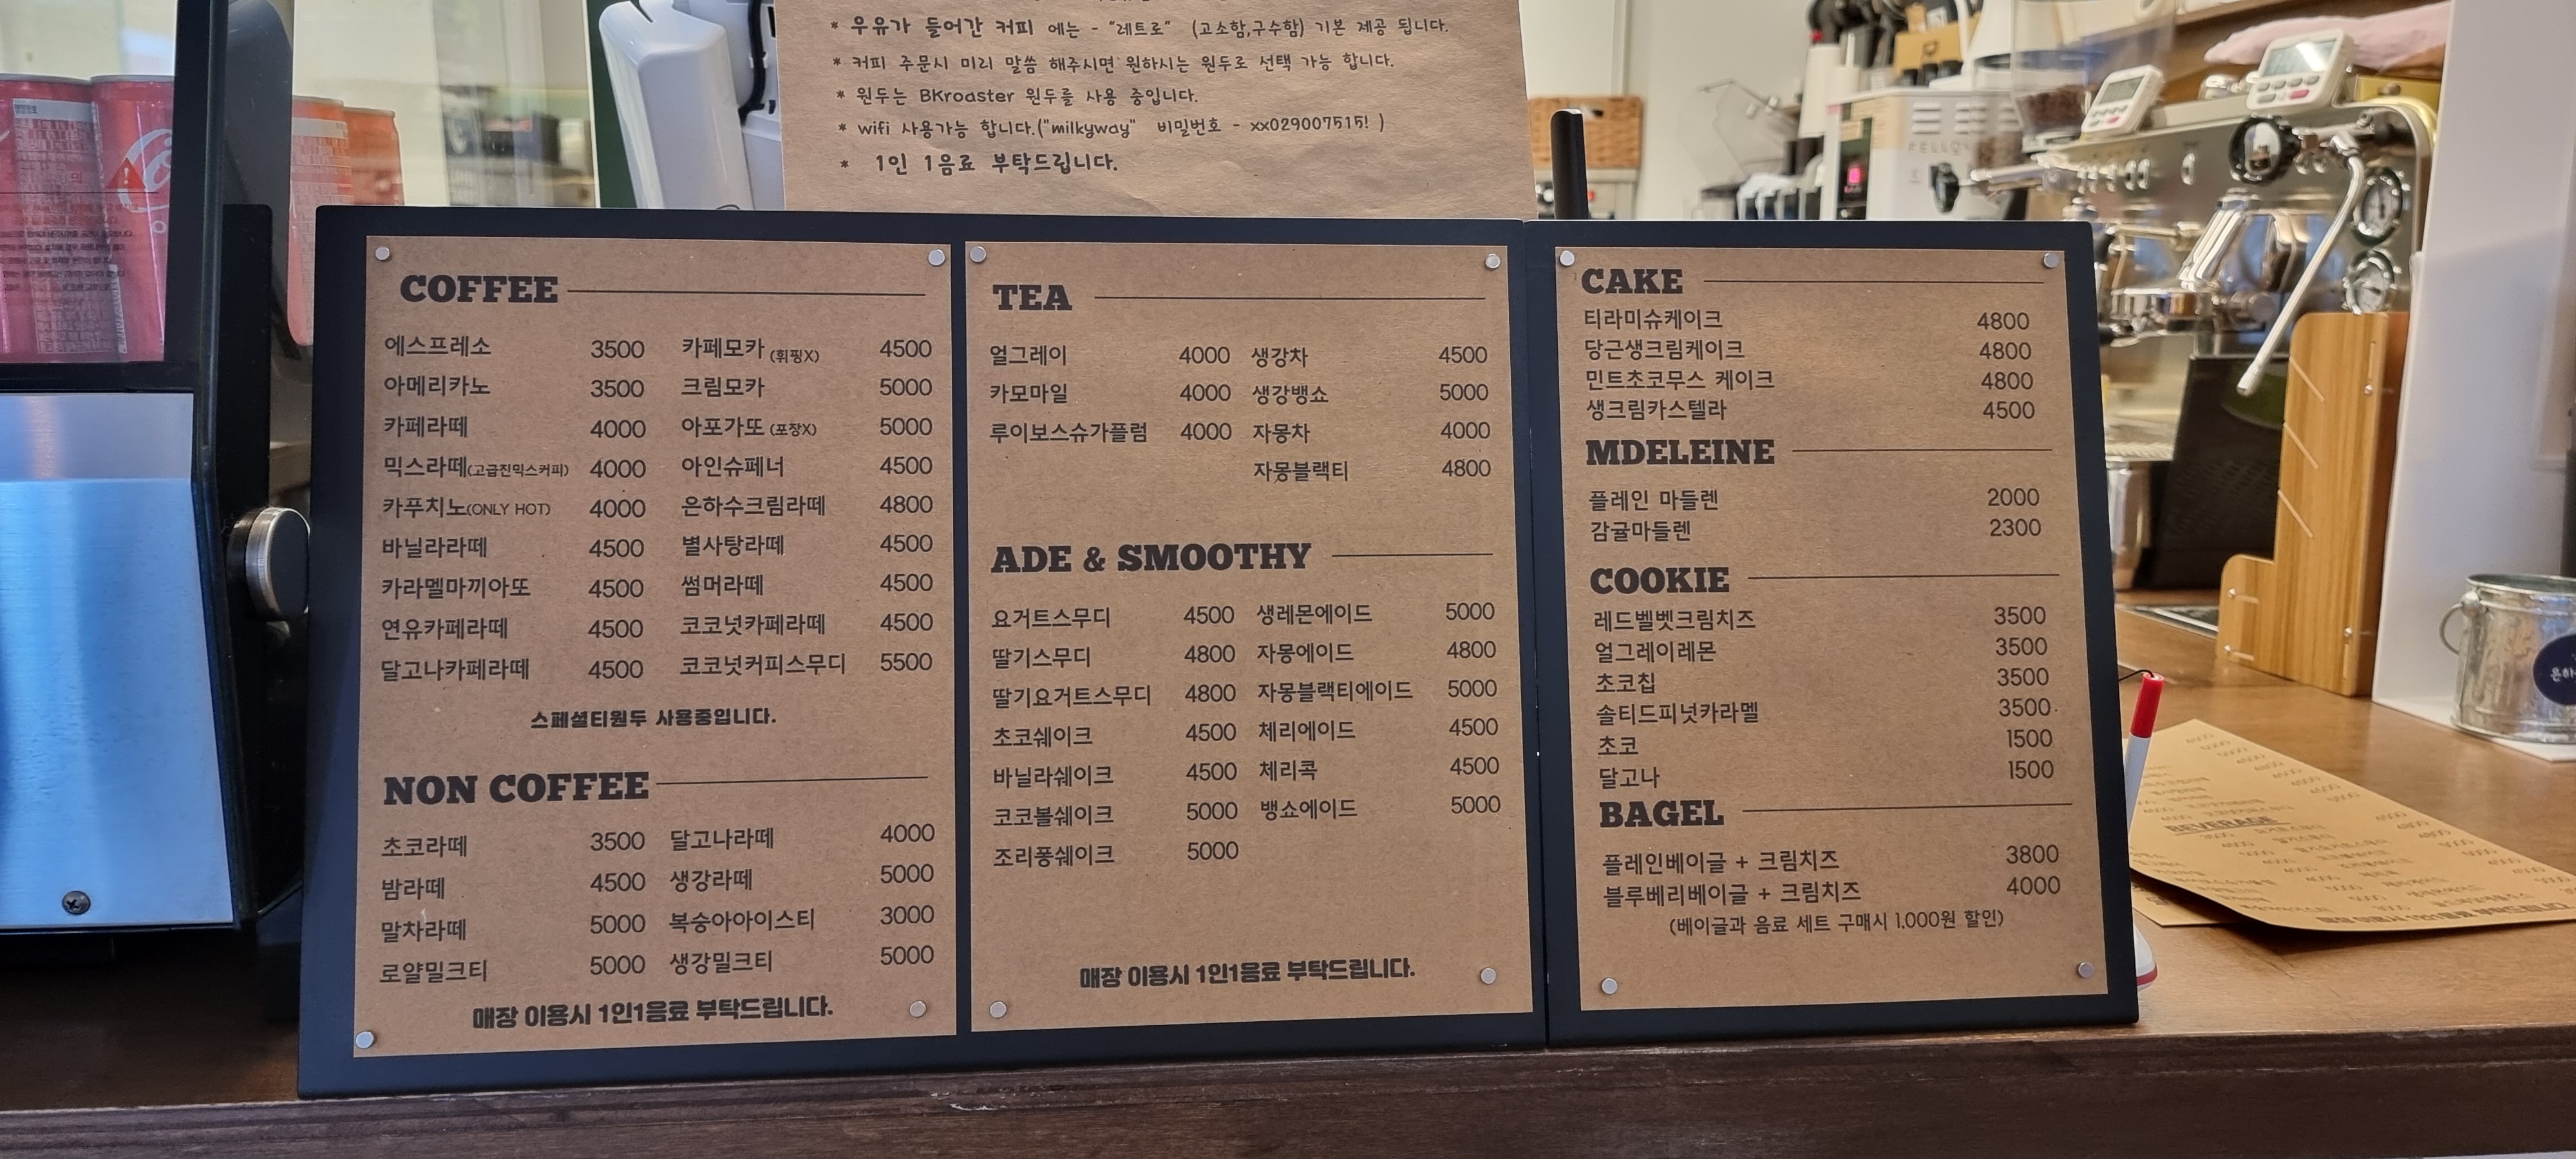 * 우유가 들어간 커피 에는 - "레트로" (고소함,구수함) 기본 제공 됩니다.
* 커피 주문시 미리 말씀 해주시면 원하시는 원두로 선택 가능 합니다.
* 원두는 BKroaster 원두를 사용 중입니다.
* wifi 사용가능 합니다.("milkyway" 비밀번호 - xx029007515! )
* 1인 1음료 부탁드립니다.
COFFEE
에스프레소 3500 카페모카 (휘핑X) 4500
아메리카노 3500 크림모카 5000
카페라떼 4000 아포가또 (포장X) 5000
믹스라떼(고급진믹스커피) 4000 아인슈페너 4500
카푸치노(ONLY HOT) 4000 은하수크림라떼 4800
바닐라라떼 4500 별사탕라떼 4500
카라멜마끼아또 4500 썸머라떼 4500
연유카페라떼 4500 코코넛카페라떼 4500
달고나카페라떼 4500 코코넛커피스무디 5500
스페셜티원두 사용중입니다.
NON COFFEE
초코라떼 3500 달고나라떼 4000
밤라떼 4500 생강라떼 5000
말차라떼 5000 복숭아아이스티 3000
로얄밀크티 5000 생강밀크티 5000
매장 이용시 1인1음료 부탁드립니다.
TEA
얼그레이 4000 생강차 4500
카모마일 4000 생강뱅쇼 5000
루이보스슈가플럼 4000 자몽차 4000
자몽블랙티 4800
ADE & SMOOTHY
요거트스무디 4500 생레몬에이드 5000
딸기스무디 4800 자몽에이드 4800
딸기요거트스무디 4800 자몽블랙티에이드 5000
초코쉐이크 4500 체리에이드 4500
바닐라쉐이크 4500 체리콕 4500
코코볼쉐이크 5000 뱅쇼에이드 5000
조리퐁쉐이크 5000
매장 이용시 1인1음료 부탁드립니다.
CAKE
티라미슈케이크 4800
당근생크림케이크 4800
민트초코무스 케이크 4800
생크림카스텔라 4500
MDELEINE
플레인 마들렌 2000
감귤마들렌 2300
COOKIE
레드벨벳크림치즈 3500
얼그레이레몬 3500
초코칩 3500
솔티드피넛카라멜 3500
초코 1500
달고나 1500
BAGEL
플레인베이글 + 크림치즈 3800
블루베리베이글 + 크림치즈 4000
(베이글과 음료 세트 구매시 1,000원 할인)
BEVERAGE